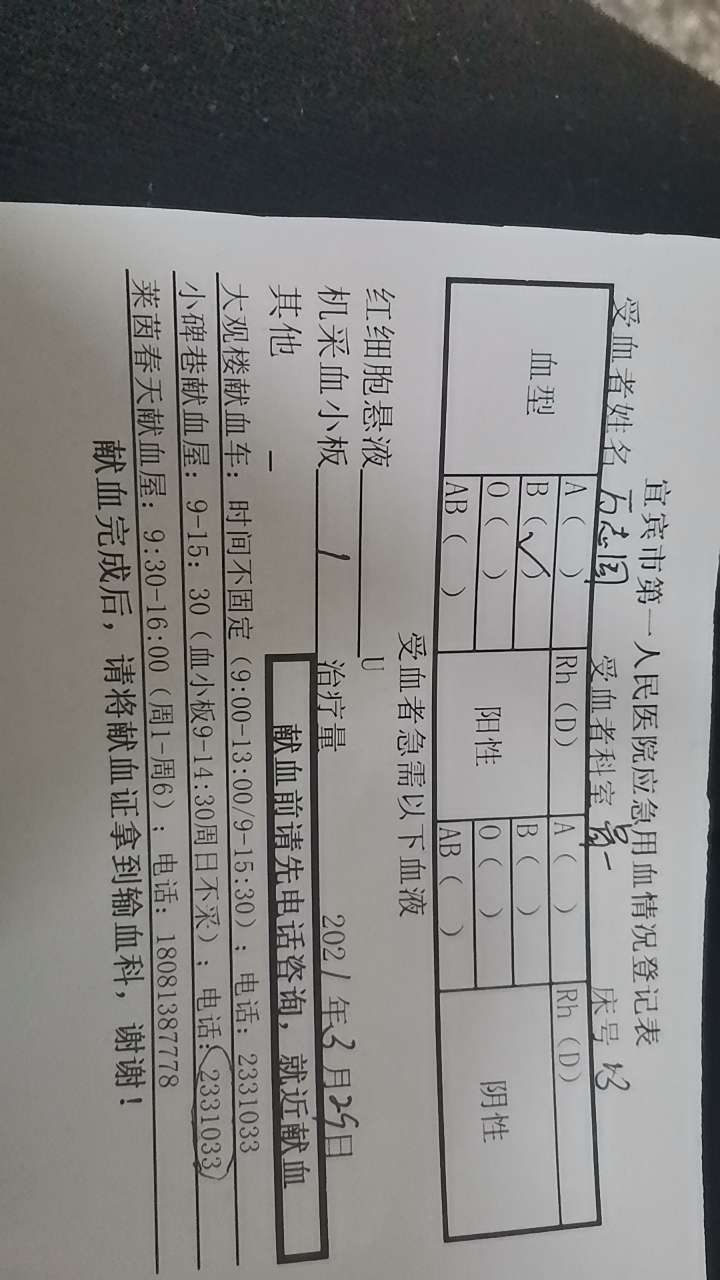 宜宾市第一人民医院应急用血情况登记表
受血者姓名 万志国 受血者科室 骨一 床号
血型 A( ) Rh(D) 阳性 A( ) Rh(D) 阴性
B(✓) B( )
O( ) O( )
AB( ) AB( )
受血者急需以下血液
红细胞悬液 U
机采血小板 1 治疗量 2021年3月29日
其他 — 献血前请先电话咨询，就近献血
大观楼献血车：时间不固定（9:00-13:00/9-15:30）；电话：2331033
小碑巷献血屋：9-15：30（血小板9-14:30周日不采）；电话：2331033/
莱茵春天献血屋：9:30-16:00（周1-周6）；电话：18081387778
献血完成后，请将献血证拿到输血科，谢谢！